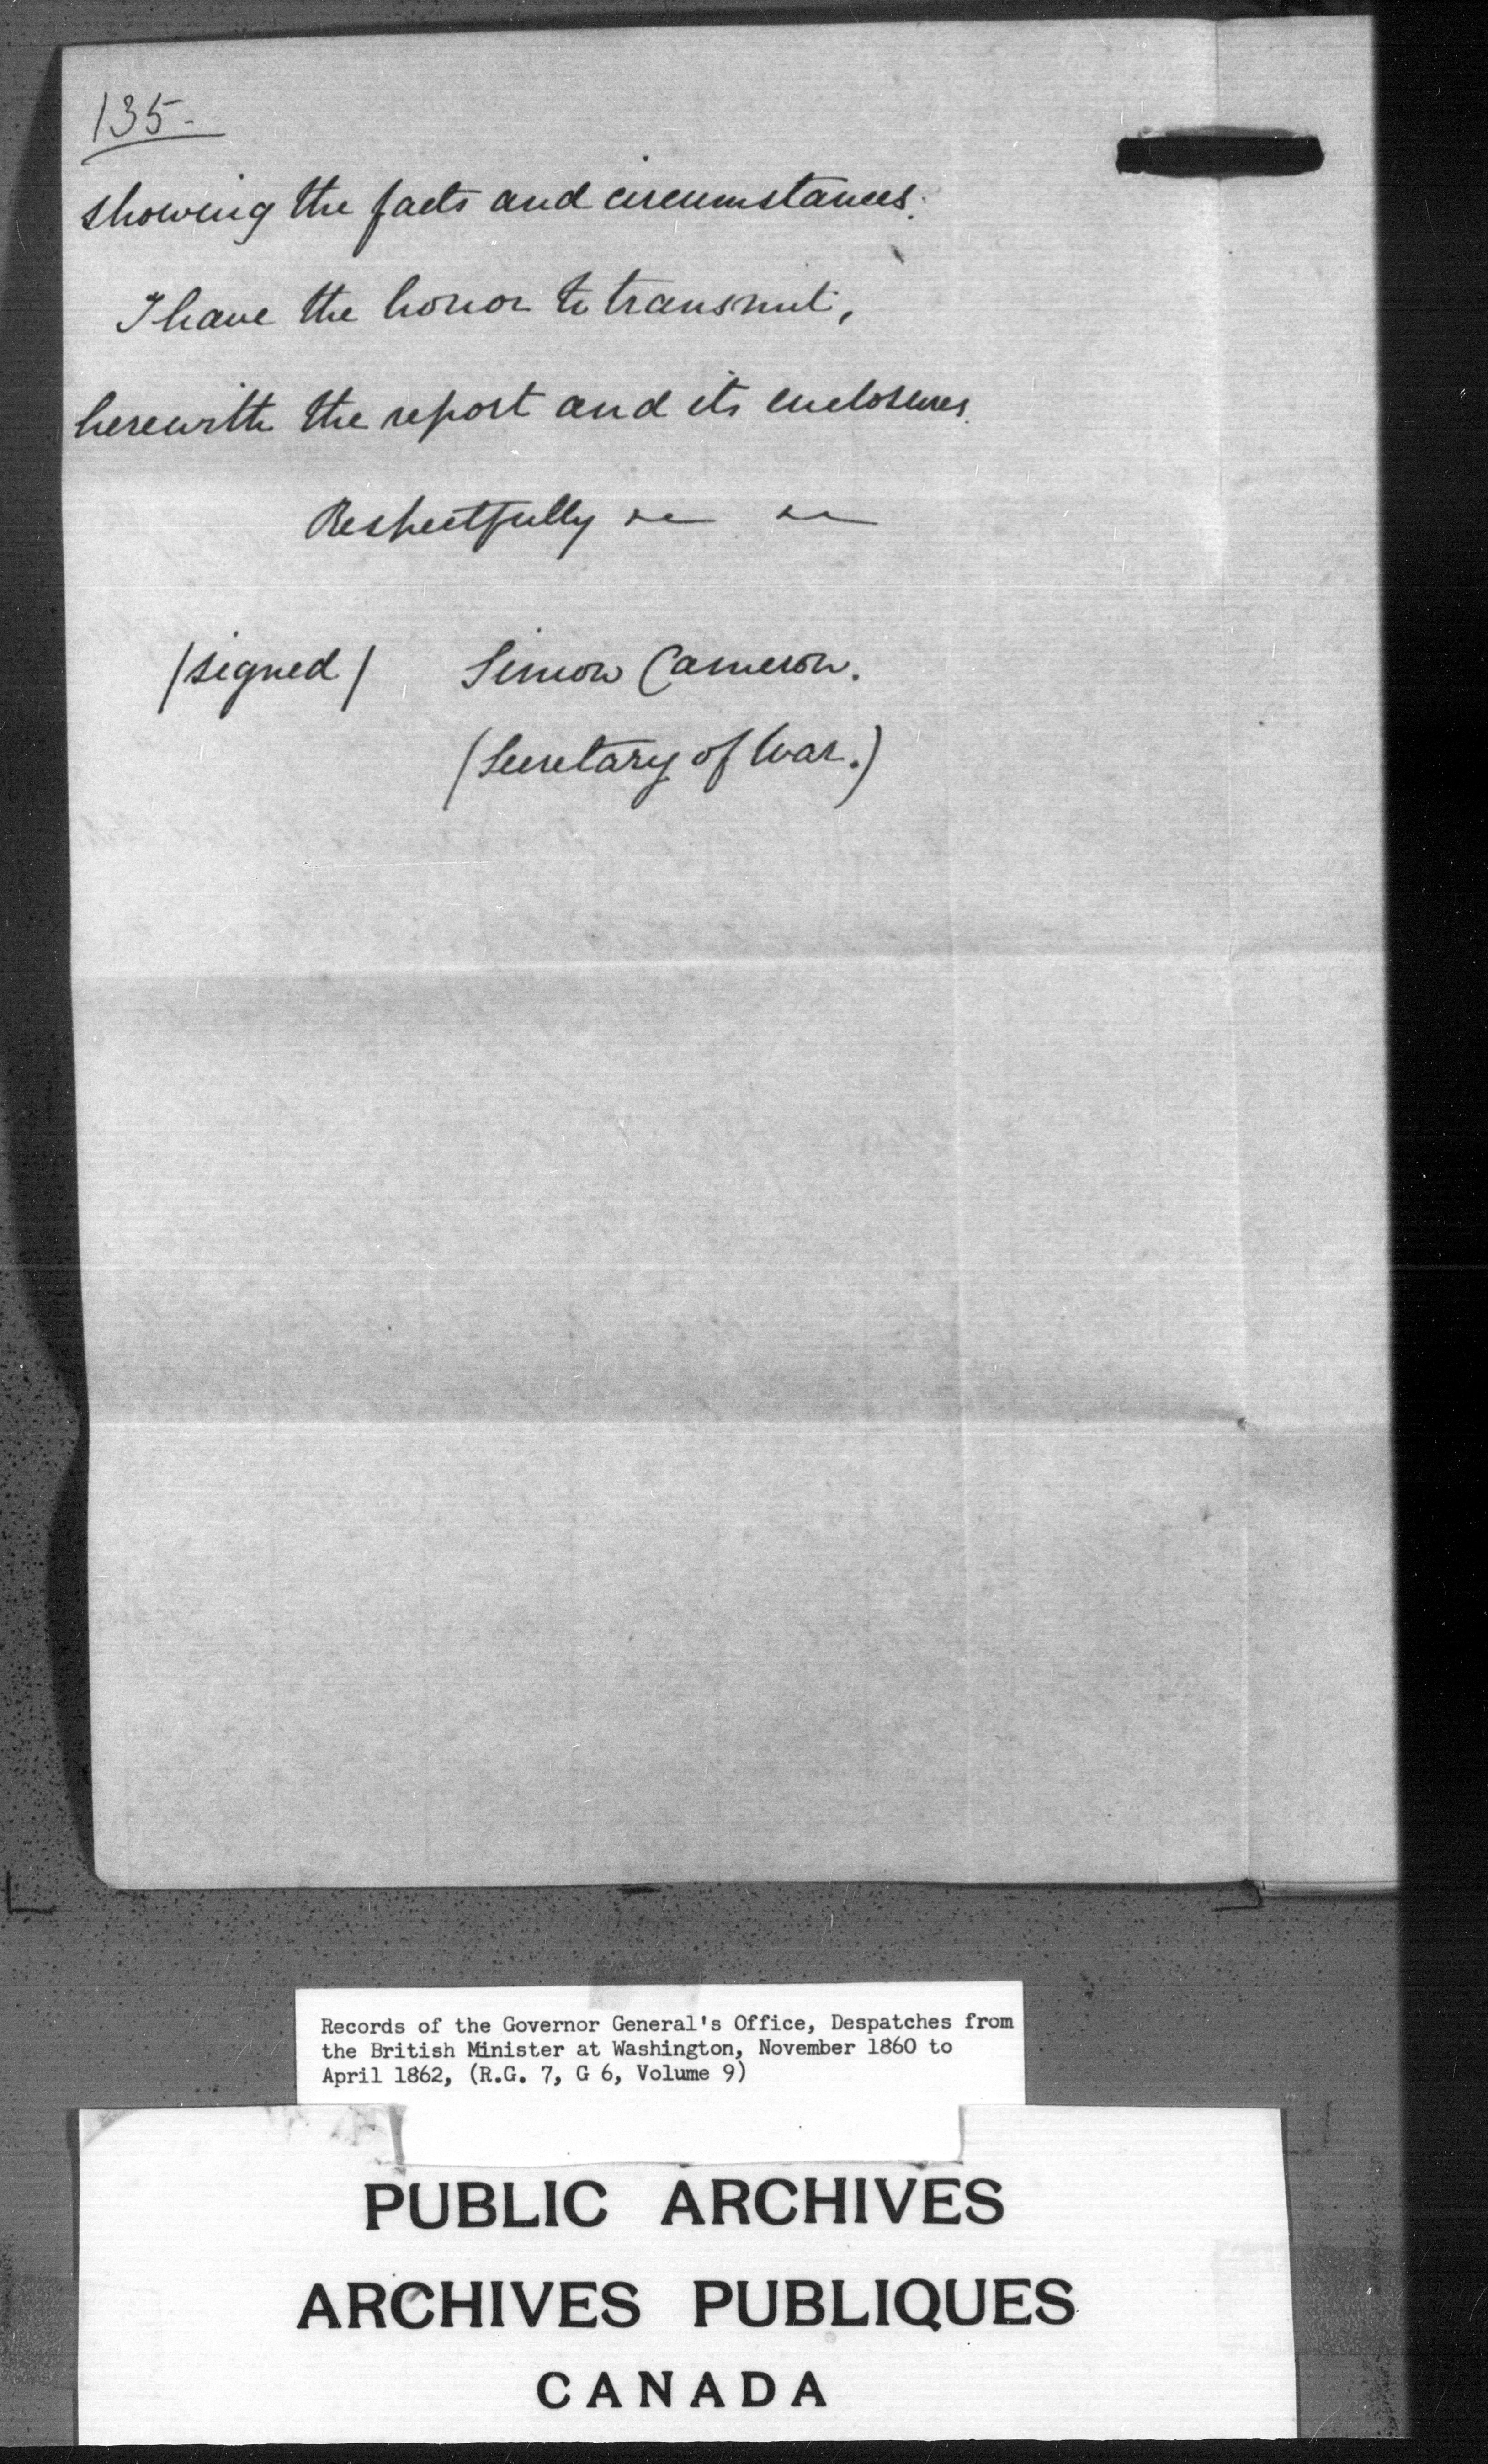 135-
showing the facts and circumstances.
I have the honor to transmit,
herewith the report and its enclosures.
Respectfully
/signed/ Simon Cameron.
(Secretary of War.)
Records of the Governor General's Office, Despatches from
the British Minister at Washington, November 1860 to
April 1862, (R.G. 7, G 6, Volume 9)
PUBLIC ARCHIVES
ARCHIVES PUBLIQUES
CANADA